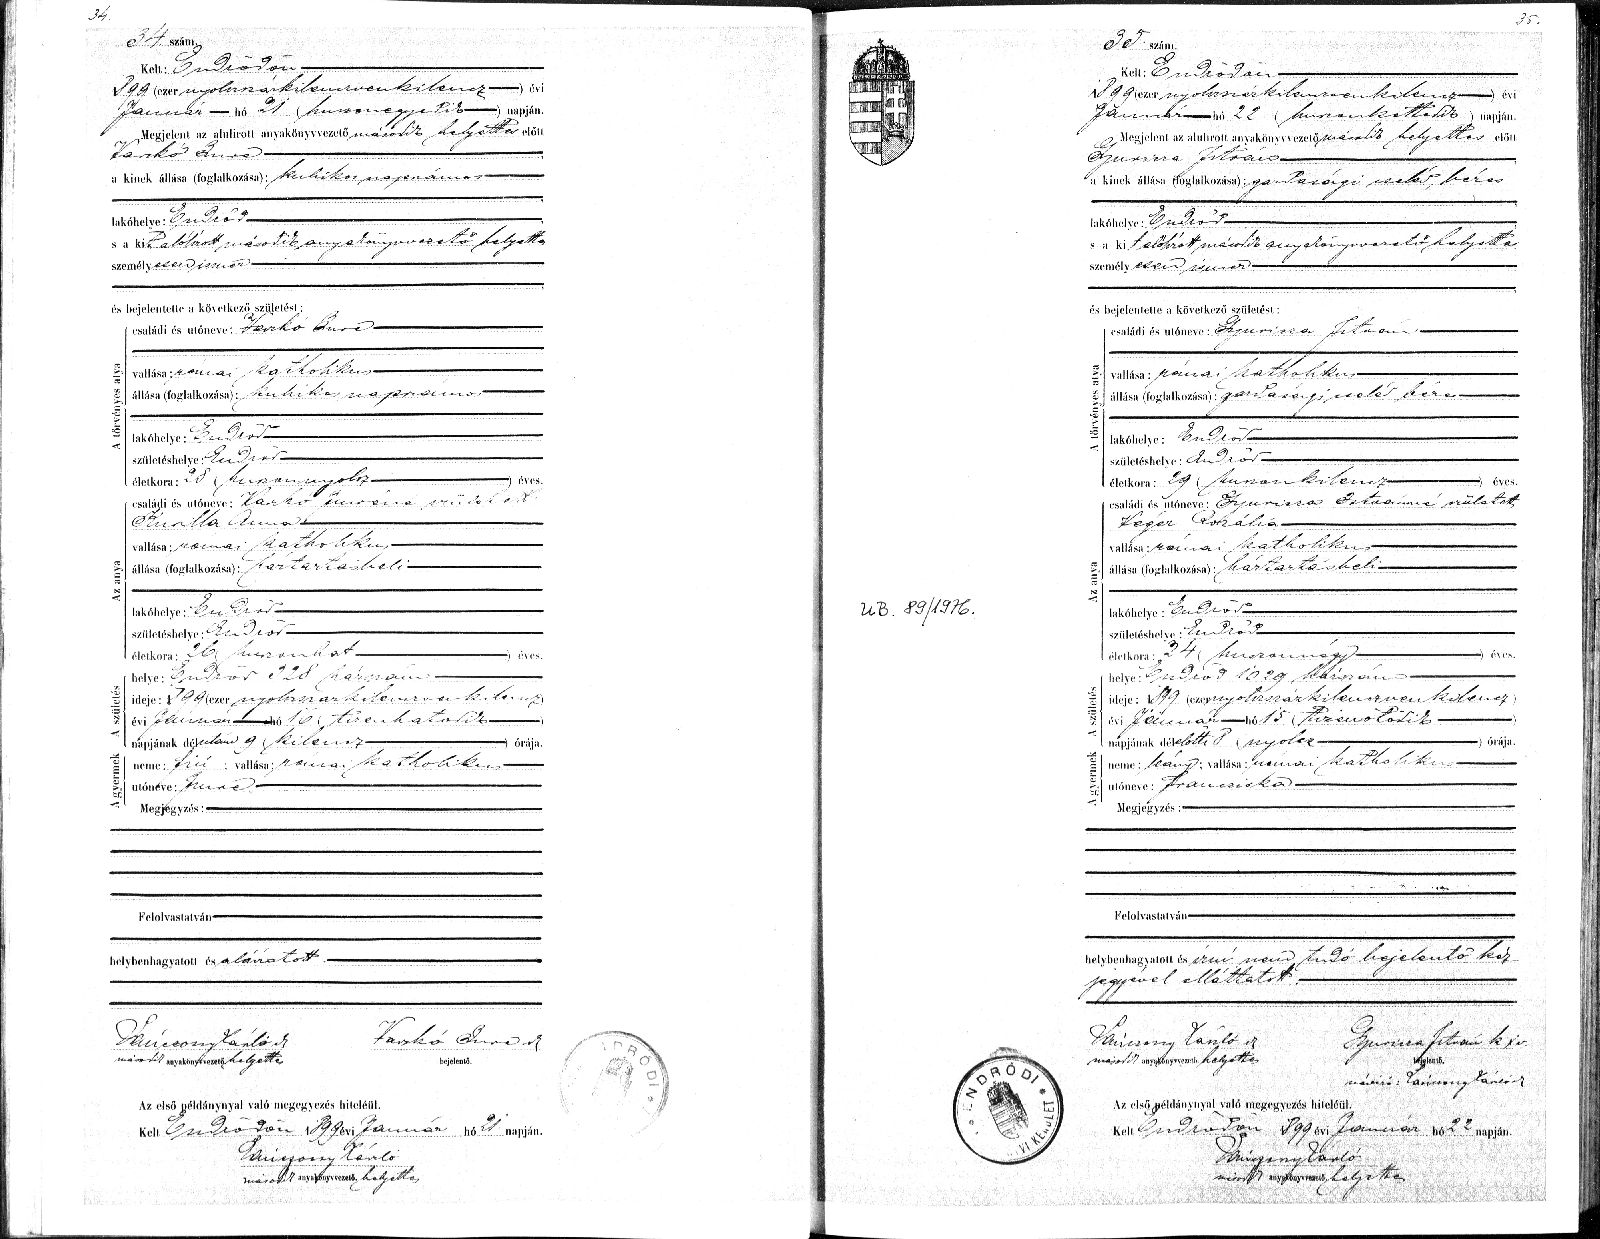 34.
34 szám.
Kelt: Endrődön
1899 (ezer nyolczszázkilenczvenkilencz) évi
Január hó 21 (huszonegyedik) napján.
Megjelent az alulirott anyakönyvvezető második helyettes előtt
Varkó Imre
a kinek állása (foglalkozása): kubikos napszámos
lakóhelye: Endrőd
s a kit alólirott második anyakönyvvezető helyettes
személyesen ismer
és bejelentette a következő születést:
A törvényes atya
családi és utóneve: Varkó Imre
vallása: római katholikus
állása (foglalkozása): kubikos napszámos
lakóhelye: Endrőd
születéshelye: Endrőd
életkora: 28 (huszonnyolcz) éves.
Az anya
családi és utóneve: Varkó Imréné született
Anna
vallása: római katholikus
állása (foglalkozása): háztartásbeli
lakóhelye: Endrőd
születéshelye: Endrőd
életkora: 26 (huszonhat) éves.
A születés
helye: Endrőd 328 házszám
ideje: 1899 (ezer nyolczszázkilenczvenkilencz)
évi Január hó 16 (tizenhatodik)
napjának délután 9 (kilencz) órája.
A gyermek
neme: fiú; vallása: római katholikus
utóneve: Imre
Megjegyzés:
Felolvastatván
helybenhagyatott és aláiratott.
Károly
második anyakönyvvezető helyettes
Varkó Imre
bejelentő.
Az első példánynyal való megegyezés hiteléül.
Kelt Endrődön 1899 évi Január hó 21 napján.
Károly
második anyakönyvvezető helyettes
35.
35 szám.
Kelt: Endrődön
1899 (ezer nyolczszázkilenczvenkilencz) évi
Január hó 22 (huszonkettedik) napján.
Megjelent az alulirott anyakönyvvezető második helyettes előtt
Gyuricza István
a kinek állása (foglalkozása): gazdasági cseléd, béres
lakóhelye: Endrőd
s a kit alólirott második anyakönyvvezető helyettes
személyesen ismer
és bejelentette a következő születést:
A törvényes atya
családi és utóneve: Gyuricza István
vallása: római katholikus
állása (foglalkozása): gazdasági cseléd béres
lakóhelye: Endrőd
születéshelye: Endrőd
életkora: 29 (huszonkilencz) éves.
Az anya
családi és utóneve: Gyuricza Istvánné született
Rozália
vallása: római katholikus
állása (foglalkozása): háztartásbeli
lakóhelye: Endrőd
születéshelye: Endrőd
életkora: 24 (huszonnégy) éves.
A születés
helye: Endrőd 1029 házszám
ideje: 1899 (ezer nyolczszázkilenczvenkilencz)
évi Január hó 15 (tizenötödik)
napjának délelőtti 8 (nyolcz) órája.
A gyermek
neme: leány; vallása: római katholikus
utóneve: Francziska
Megjegyzés:
UB. 89/1976.
Felolvastatván
helybenhagyatott és irni nem tudó bejelentő kéz-
jegyével elláttatott.
Károly
második anyakönyvvezető helyettes
Gyuricza István
bejelentő.
Károly
ENDRŐDI
Az első példánynyal való megegyezés hiteléül.
Kelt Endrődön 1899 évi Január hó 22 napján.
Károly
második anyakönyvvezető helyettes